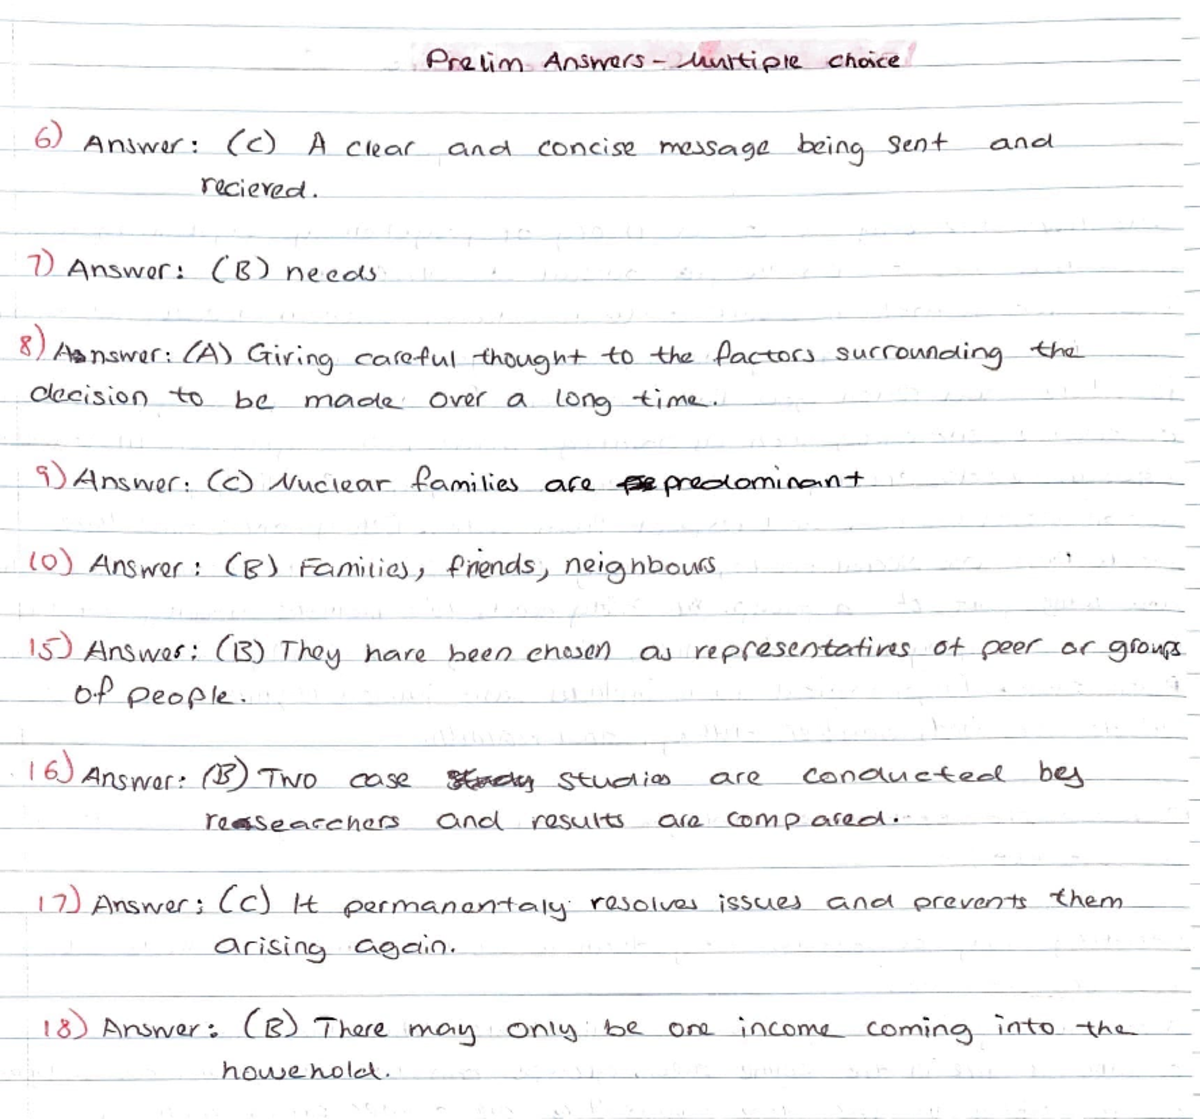 Prelim Answers - Multiple choice
6) Answer: (C) A clear and concise message being sent and
recieved.
7) Answer: (B) needs
8) Answer: (A) Giving careful thought to the factors surrounding the
decision to be made over a long time.
9) Answer: (C) Nuclear families are predominant
10) Answer: (B) Families, friends, neighbours
15) Answer: (B) They have been chosen as representatives of peer or groups
of people.
16) Answer: (B) Two case studies are conducted by
researchers and results are compared.
17) Answer: (C) It permanentaly resolves issues and prevents them
arising again.
18) Answer: (B) There may only be one income coming into the
household.